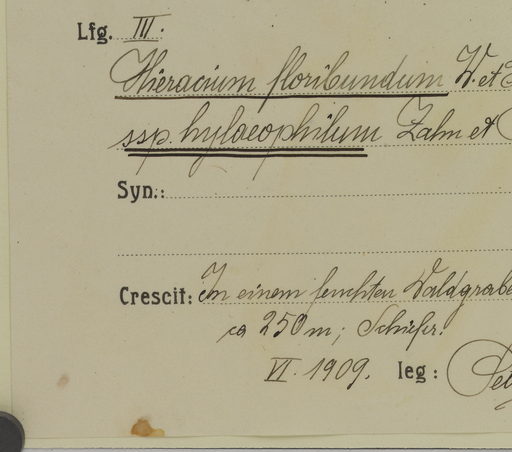 Lfg. III.
Hieracium floribundum W. et
ssp. hylaeophilum Zahn et
Syn.:
Crescit: In einem feuchten Waldgrabe
ca 250 m; Schiefer.
VI. 1909. leg: